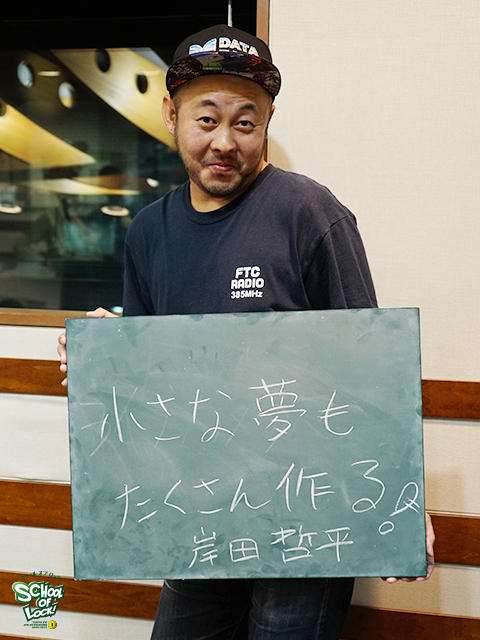 DATA
FTC
RADIO
385MHz
小さな夢も
たくさん作る!
岸田哲平
SCHOOL
OF
LOCK!